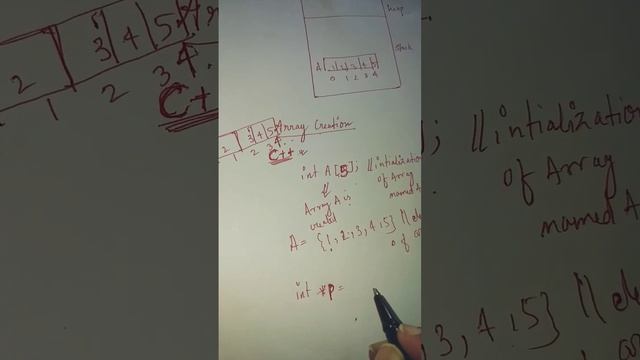 Heap
Stack
A 1 2 3 4 5
0 1 2 3 4
2 3 4 5
1 2 3 4..
Array Creation
C++
int A[5]; //intialization
of Array
named A
Array A is
created
A = {1, 2, 3, 4, 5} //
of
int *p =